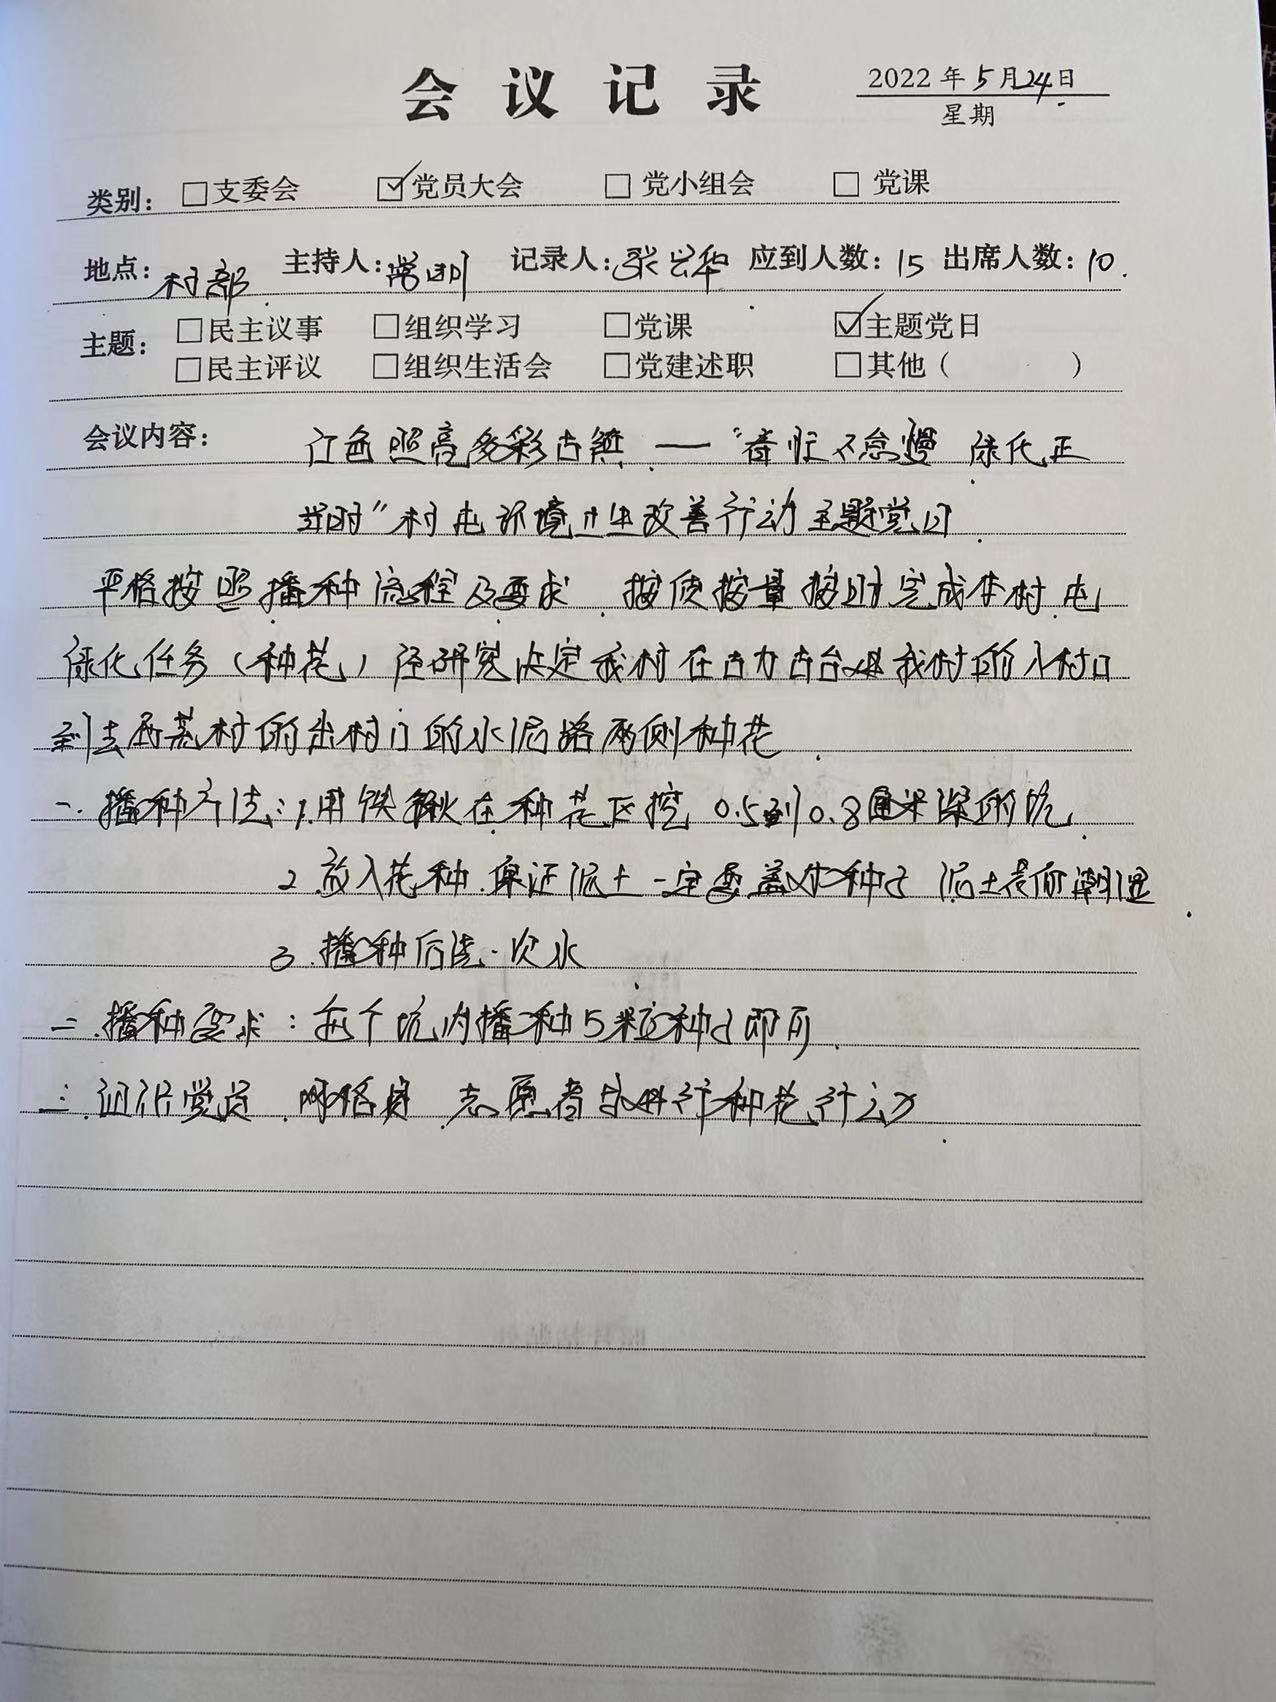 会议记录
2022年5月24日
星期
类别: □支委会 ☑党员大会 □党小组会 □党课
地点: 村部 主持人: 记录人: 张 华 应到人数: 15 出席人数: 10.
主题: □民主议事 □组织学习 □党课 ☑主题党日
□民主评议 □组织生活会 □党建述职 □其他( )
会议内容: 红色照亮多彩古镇 ——“春忙不怠慢 绿化正
当时”村屯环境卫生改善行动主题党日.
严格按照播种流程及要求,按质按量按时完成本村屯
绿化任务(种花)经研究决定我村在古力古台 我村的入村口
到去 村的出村口的水泥路两侧种花.
一.播种方法:1.用铁锹在种花区挖0.5到0.8厘米深的坑.
2.放入花种.保证泥土一定要盖 种子 泥土表面潮湿.
3.播种后浇一次水
二.播种要求:每个坑内播种5粒种子即可.
三.组织党员 网格员 志愿者 进行种花行动.